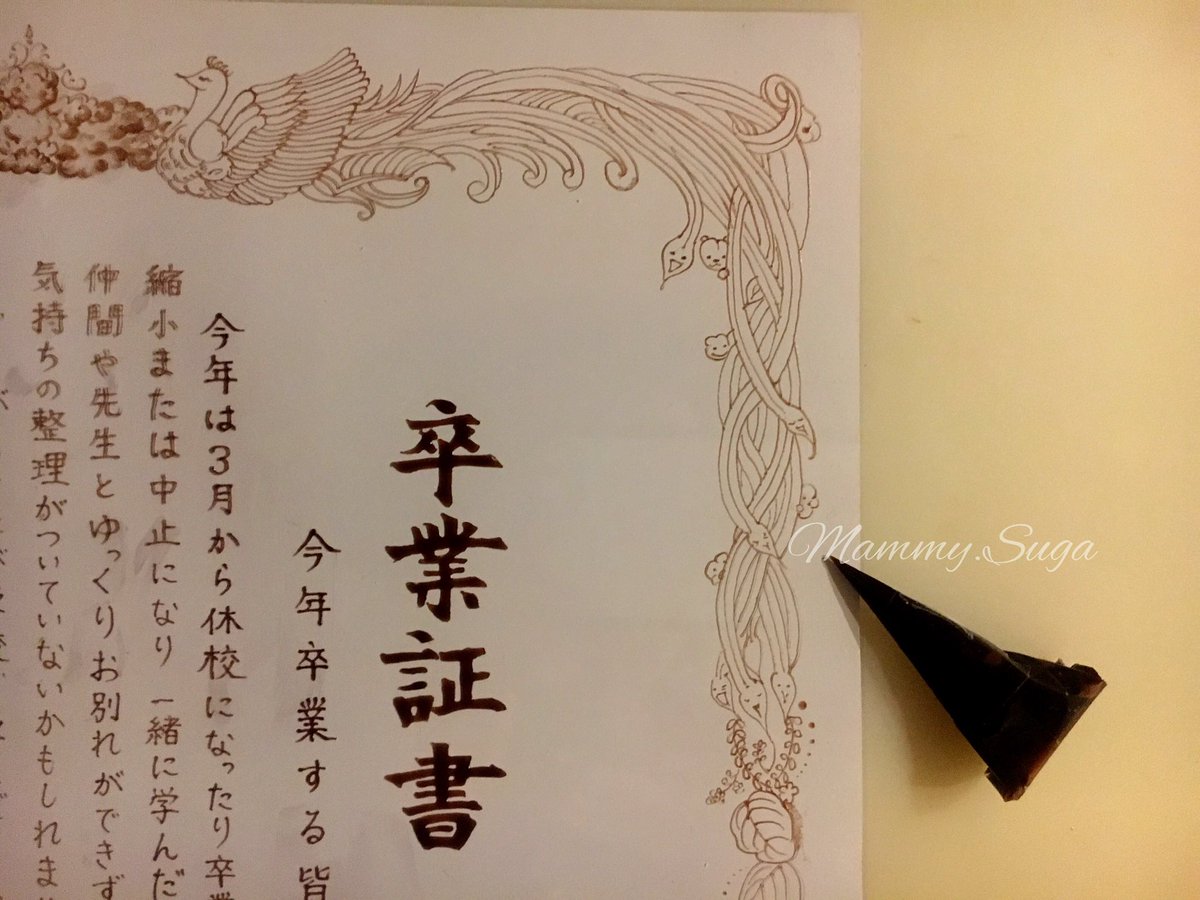 卒業証書
今年卒業する皆
今年は3月から休校になったり卒業
縮小または中止になり 一緒に学んだ
仲間や先生とゆっくりお別れができず
気持ちの整理がついていないかもしれま
Mammy.Suga